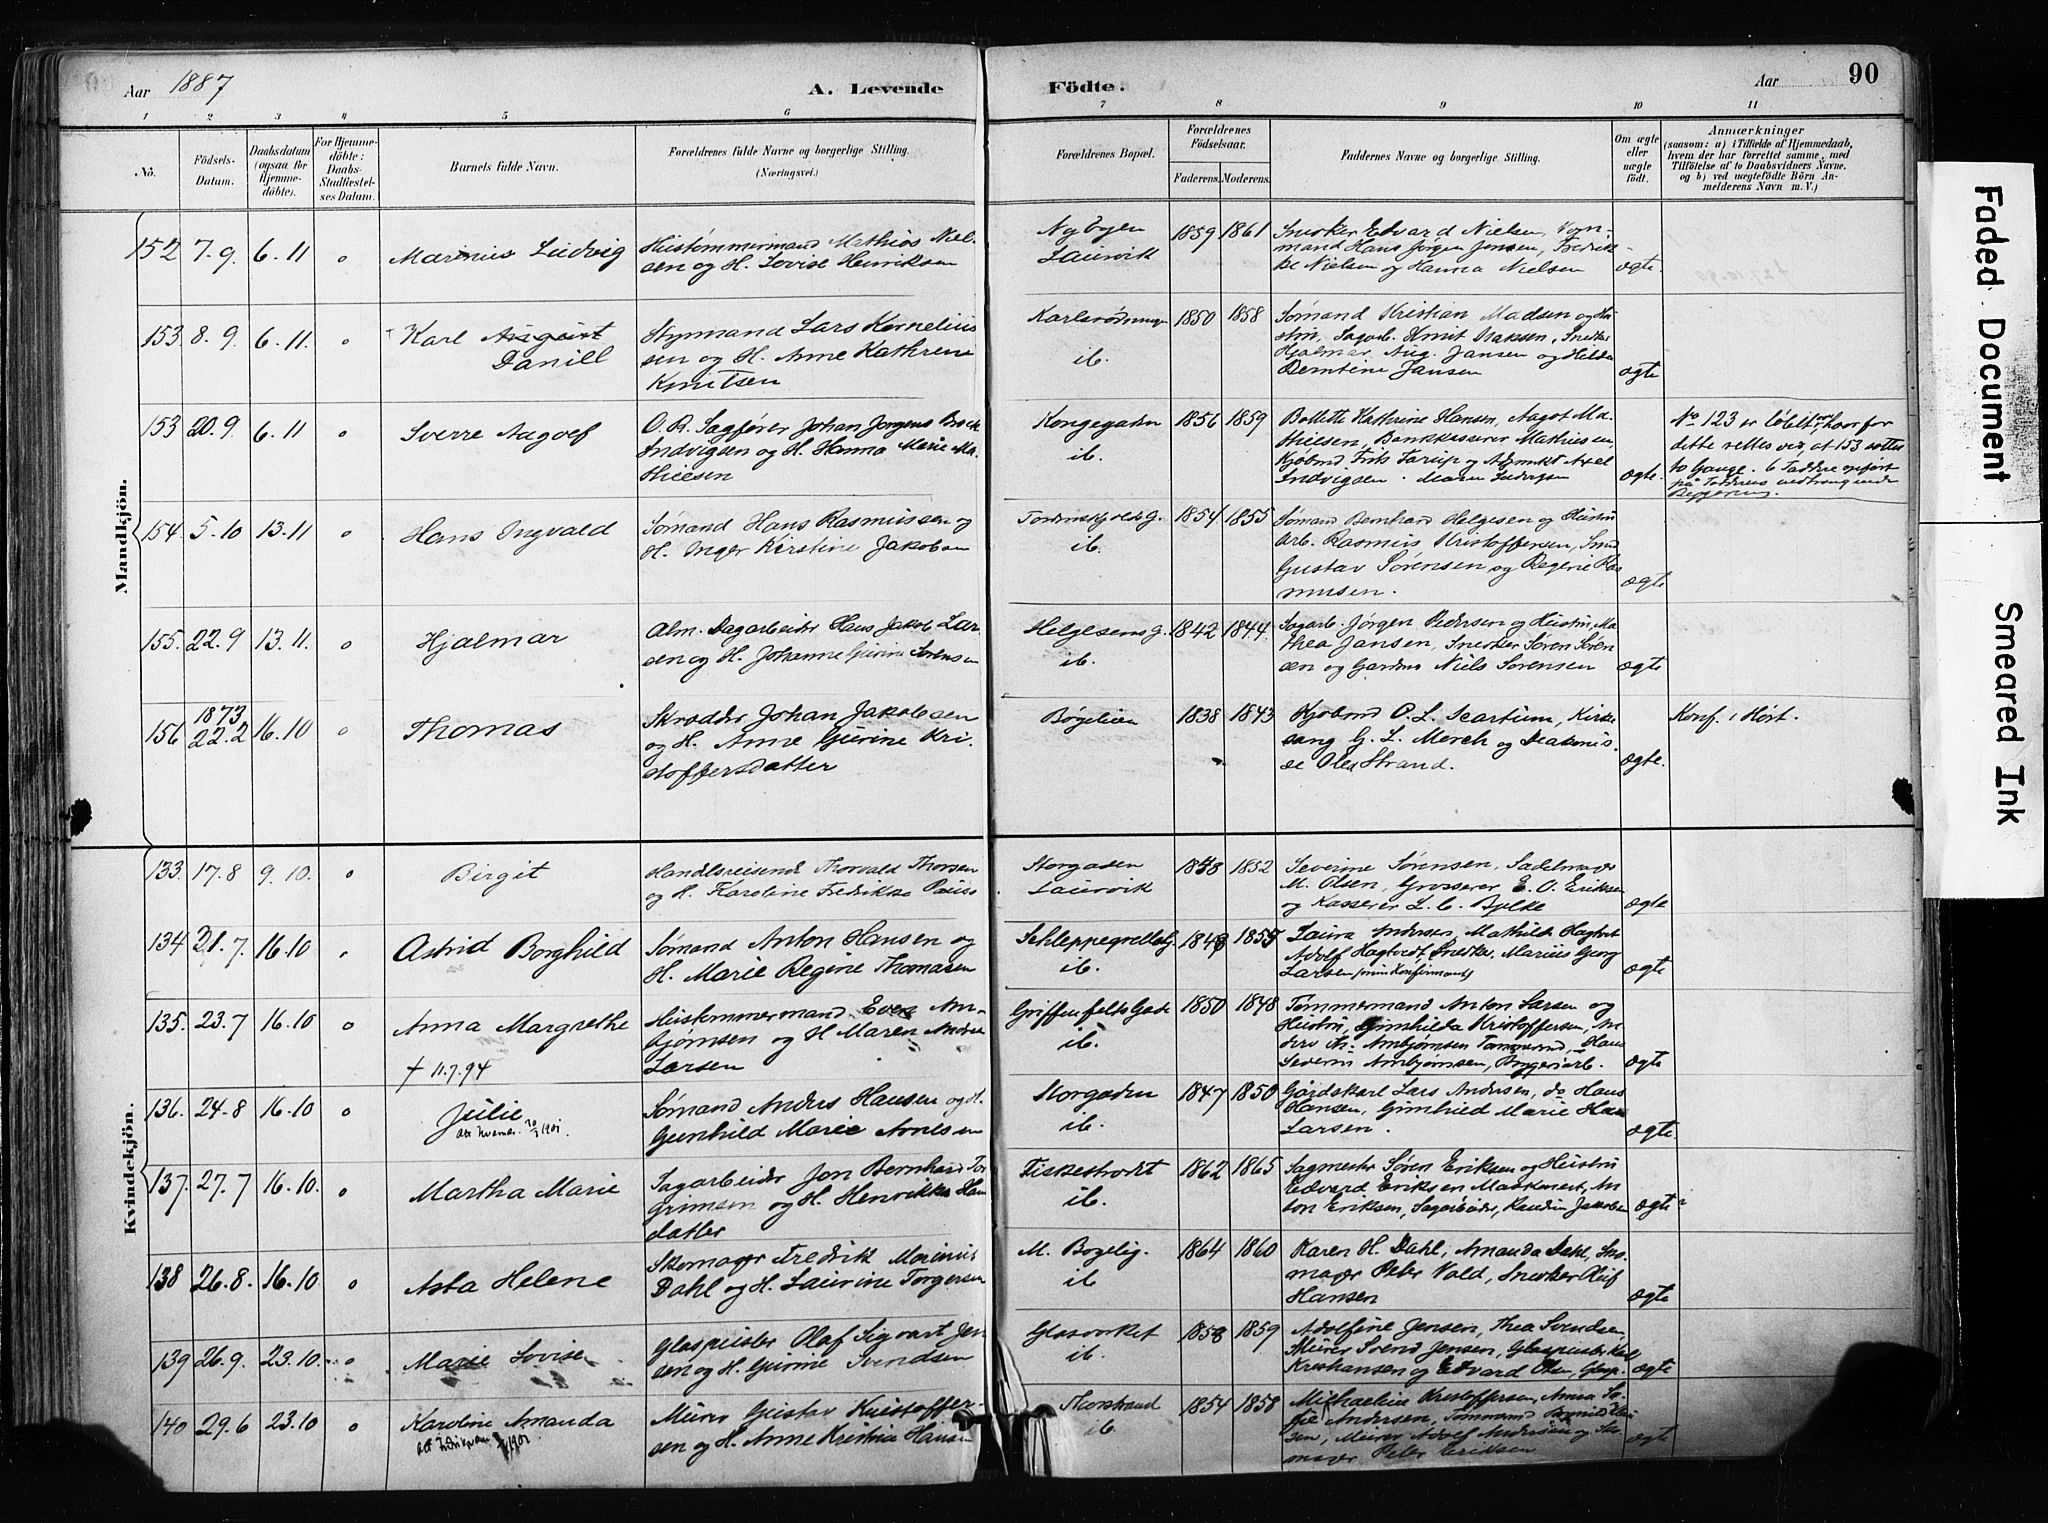 Aar 1887
A. Levende
Födte.
Aar
90
1 2 3 4 5 6 7 8 9 10 11
No.
Födsels-
Datum.
Daabsdatum
(ogsaa for
Hjemme-
döbte).
For Hjemme-
döbte:
Daabs-
Stadfæstel-
ses Datum.
Barnets fulde Navn.
Forældrenes fulde Navne og borgerlige Stilling.
(Næringsvei.)
Forældrenes Bopæl.
Forældrenes
Födselsaar.
Faderens. Moderens.
Faddernes Navne og borgerlige Stilling.
Om ægte
eller
uægte
født.
Anmærkninger
(saasom: a) i Tilfælde af Hjemmedaab,
hvem der har forrettet samme, med
Tilföielse af to Daabsvidners Navne.
og b) ved uægtefödte Börn An-
melderens Navn m. V.)
Mandkjön.
152 7.9. 6.11 Marinus Ludvig
Hustömmermand Mathias Niel-
sen og H. Lovise Henriksen
Nybyen
Laurvik
1859 1861
Snedker Edvard Nielsen, Form-
mand Hans Jørgen Jensen, Fredrik-
ke Nielsen og Hanna Nielsen
ægte.
153 8.9. 6.11. Karl
Daniel
Styrmand Lars Kornelius
sen og H. Anne Kathrene
Knutsen
ib.
1850 1858
Sømand Kristian Madsen og Hu-
stru, Sagarb. Knut Isaksen, Snedker
Hjalmar Aug. Jansen og Helda
Berntine Jansen
ægte
153 20.9. 6.11 Sverre Aagolf
O.R. Sagfører Johan Jørgens Brock
Indvigsen og H. Hanna Marie Ma-
thiesen
Kongegaden
ib.
1856 1859
Bollette Kathrine Hansen, Aagot Ma-
thiesen, Bankkasserer Mathiesen
Kjøbmd Frits Tarup og Axel
Indvigsen. Maren Indvigsen
ægte.
No 123 er hvorfor
dette rettes ved, at 153 sættes
to Gange. 6 Faddere opført
154. 5.10 13.11 Hans Ingvald
Sømand Hans Rasmussen og
H. Inger Kirstine Jakobsen
Tordenskjolds G.
ib.
1854 1855
Sømand Bernhard Helgesen og Hustru
Arb. Rasmus Kristoffersen, Smed
Gustav Sørensen og Regine Ras
musen.
ægte
155. 22.9 13.11. Hjalmar
Alm. Dagarbeider Hans Jakob Lar-
sen og H. Johanne Gurine Sørensen
Helgesens g.
ib.
1842 1844.
Sagarb. Jørgen Pedersen og Hustru, Ma-
thea Jansen, Snedker Søren Søren
sen og Gardner Niels Sørensen
ægte
156 1873
22.2 16.10 Thomas
Skrædder Johan Jakobsen
og H. Anne Gurine Kri-
stoffersdatter
Bøgelien
1838 1843
Kjøbmd O. L. Scartum, Kirke
sang. G. L. Merch og Diakonis-
se Olea Strand.
ægte.
Konf. i Høst.
Kvindekjön.
133. 17.8 9.10. Birgit
Handelsreisende Thorvald Thorsen
og H. Karoline Fredrikke Pauss
Storgaden
Laurvik
1858 1852
Severine Sørensen, Sadelmager
M. Olsen, Grosserer E. O. Eriksen
og Kasserer L. C. Bylke
ægte
134 21.7. 16.10 Astrid Borghild
Sømand Anton Hansen og
H. Marie Regine Thomasen
Schleppegrellsg.
ib.
1848 1855
Laura Andersen, Mathilde Hagtvet
Adolf Hagtvedt Snedker, Marius Georg
Larsen (min Konfirmand)
ægte
135. 23.7 16.10 Anna Margrethe
† 11.7.94
Hustømmermand Even Am-
bjørnsen og H Maren Andrea
Larsen
Griffenfelts Gade
ib.
1850 1848
Tømmermand Anton Larsen og
Hustru, Gunhilda Kristoffersen, An-
ders Th. Ambjørnsen Tømmermd, Hans
Severin Ambjørnsen, Bryggeriarb.
ægte
136. 24.8 16.10 Julie
Sømand Anders Hansen og H.
Gunhild Marie Arnesen
Storgaden
ib.
1847 1850
Gårdskarl Lars Andersen, do Hans
Hansen, Gunhild Marie Hans
Larsen.
ægte.
137. 27.7 16.10. Martha Marie
Sagarbeider Jon Bernhard Tor
grimsen og H. Henrikke Han
datter
Fiskestrædet
ib.
1862 1865
Sagmester Søren Eriksen og Hustru
Edvard Eriksen Maskinest, An
ton Eriksen, Sagarbeider, Karoline Jakobsen
ægte
138 26.8. 16.10 Asta Helene
Skomager Fredrik Marinius
Dahl og H. Laurine Torgersen
M. Bøgelig.
ib
1864 1860
Karen H. Dahl, Amanda Dahl, Sko-
mager Peter Vold, Snedker Oluf
Hansen
ægte
139 26.9. 23.10. Marie Lovise
Glaspuster Olaf Sigvart Jen
sen og H. Gurine Svendsen
Glasværket
ib.
1858 1859
Adolfine Jensen, Thea Svendsen
Murer Svend Jensen, Glaspuster Karl
Kristiansen og Edvard Olsen, Glasp.
ægte
140 29.6 23.10 Karoline Amanda
Murer Gustav Kristoffer-
sen og H. Anne Kristina Hansen
Thorstrand
ib.
1854 1858
Michaeline Kristoffersen, Anna So-
fie Andersen, Tømmermd
sen, Murer Adolf Andersen og Sko-
mager Peter Eriksen
ægte
Faded Document
Smeared Ink